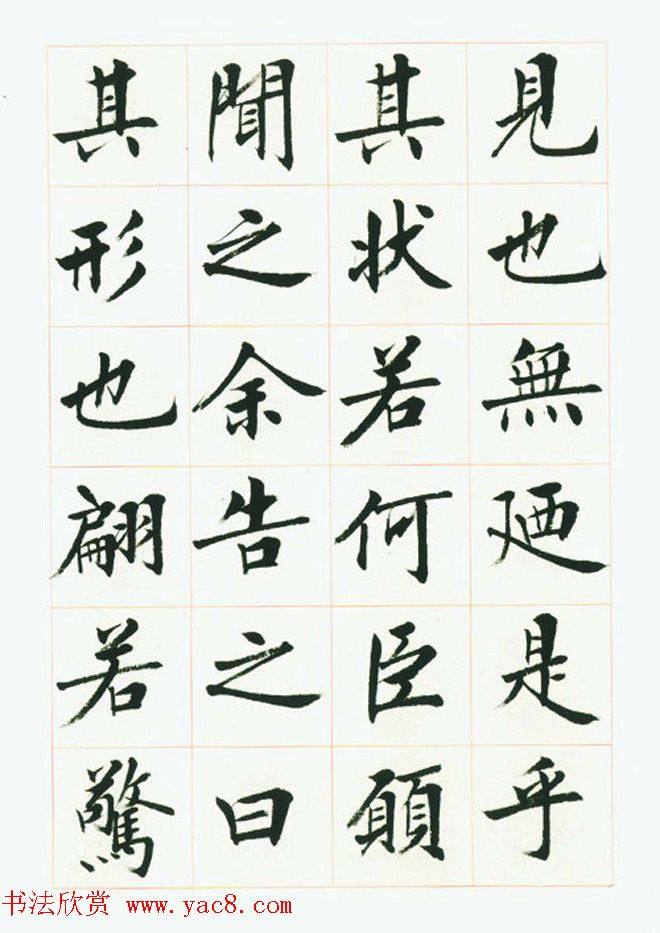 見也無廼是乎
其状若何臣願
聞之余告之曰
其形也翩若驚
书法欣赏 www.yac8.com